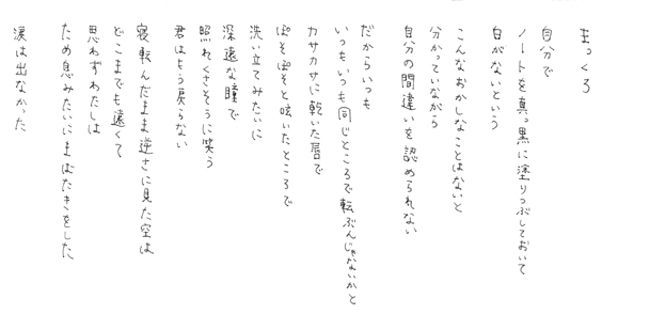 まっくろ
自分で
ノートを真っ黒に塗りつぶしておいて
白がないという
こんなおかしなことはないと
分かっていながら
自分の間違いを認められない
だからいつも
いつもいつも同じところで転ぶんじゃないかと
カサカサに乾いた唇で
ぼそぼそと呟いたところで
洗い立てみたいに
深遠な瞳で
照れくさそうに笑う
君はもう戻らない
寝転んだまま逆さに見た空は
どこまでも遠くて
思わずわたしは
ため息みたいにまばたきをした
涙は出なかった